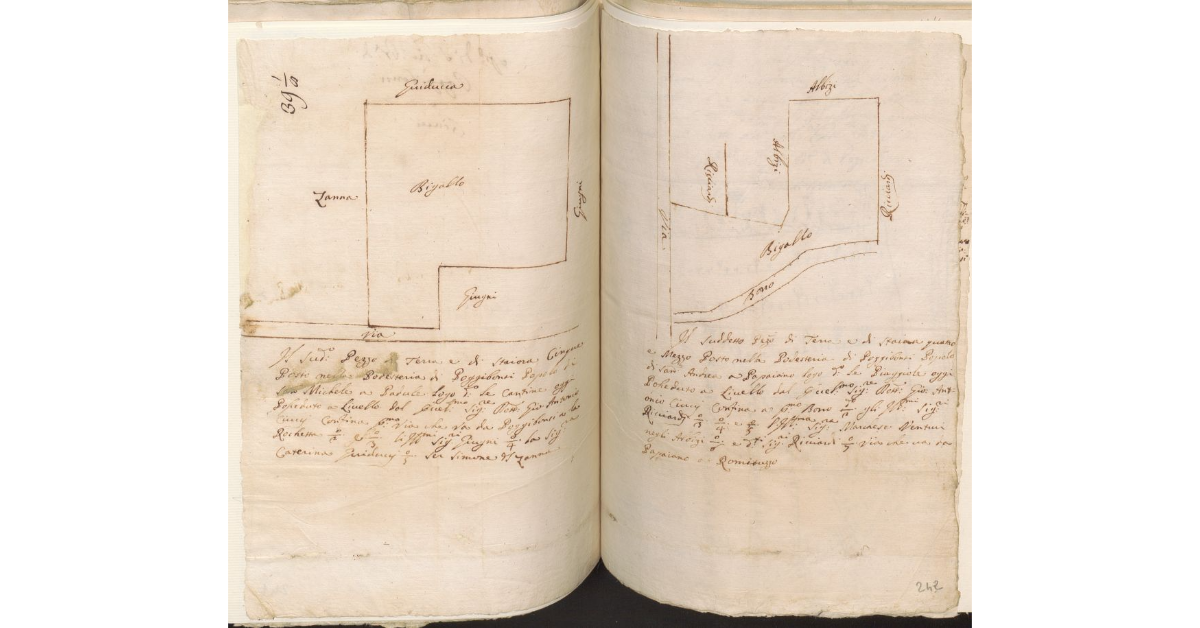 39 1/a
Guiducci
Zanna
Bigallo
Giugni
Giugni
Via
Il Sud.º Pezzo di Terra e di Staiora Cinque
Posto nella Podesteria di Poggibonsi Popolo di
San Michele a Padule luogo d.º le Cantine oggi
Posseduto a Livello dal Sig. Dott. Gio Antonio
Ciucj Confina p.mo via che va da Poggibonsi a la
Rochetta Sig. Giugni la Sig.
Caterina Guiducci Ser Simone del Zanna
Albizi
Albizi
Ricciardi
Ricciardi
Via
Bigallo
Borro
Il Suddetto Pezzo di Terra e di Staiora quattro
e Mezzo Posto nella Podesteria di Poggibonsi Popolo
di Sant Andrea a Papaiano luogo d.º le Piaggiole oggi
Posseduto a Livello dal Sig. Dott. Gio Ant-
onio Ciucj Confina a p.mo Borro gli Sig.
Ricciardi e Sig. Marchese Venturi
negli Albizi e Sig. Ricciardi via che va da
Papaiano a Romituzzo
242